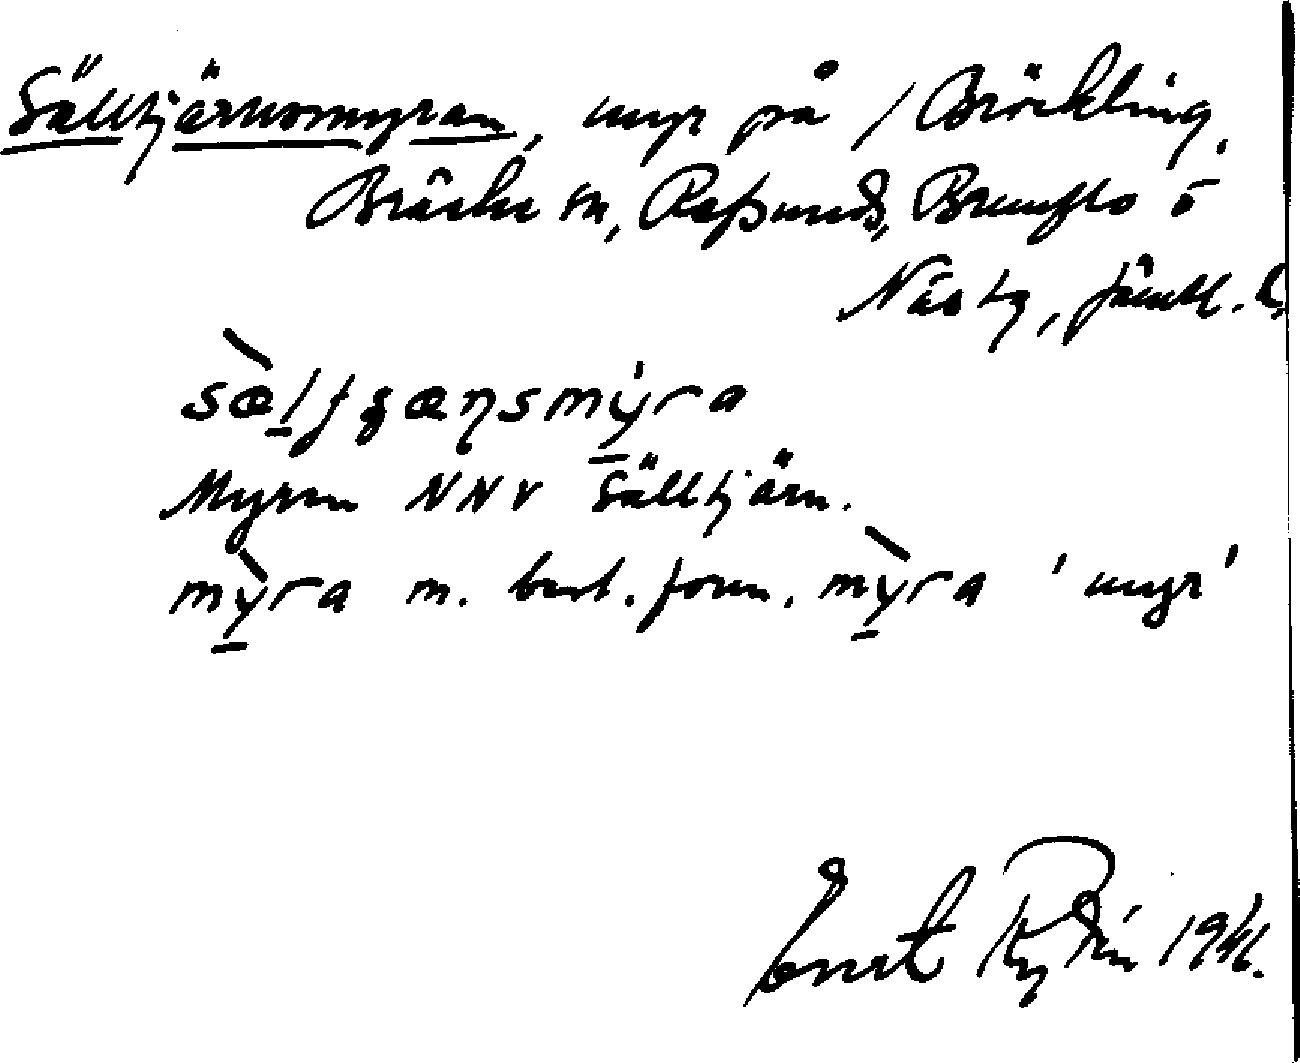 Sälltjärnsmyran, myr på / Bräckling,
Bräcke sn, Refsunds, Brunflo o
Näs tg, Jämtl. l.
sæ̀lʃʒæƞsmýra
Myren NNV Sälltjärn.
mỳra m. best. form. mỳra 'myr'
Ernst Rydén 1946.